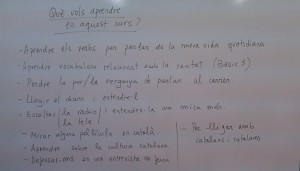 Què vols aprendre
en aquest curs?
- Aprendre els verbs per parlar de la meva vida quotidiana
- Aprendre vocabulari relacionat amb la sanitat (Bàsic 3)
- Perdre la por/la vergonya de parlar al carrer.
- Llegir el diari i entendre'l
- Escoltar la ràdio/ la tele i entendre-la una mica més.
- Mirar alguna pel·lícula en català.
- Aprendre sobre la cultura catalana
- Defensar-me en una entrevista de feina
- Per lligar amb
catalans i catalanes